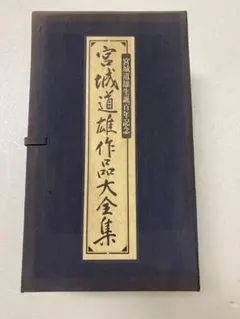 宮城道雄生誕百年記念
宮城道雄作品大全集